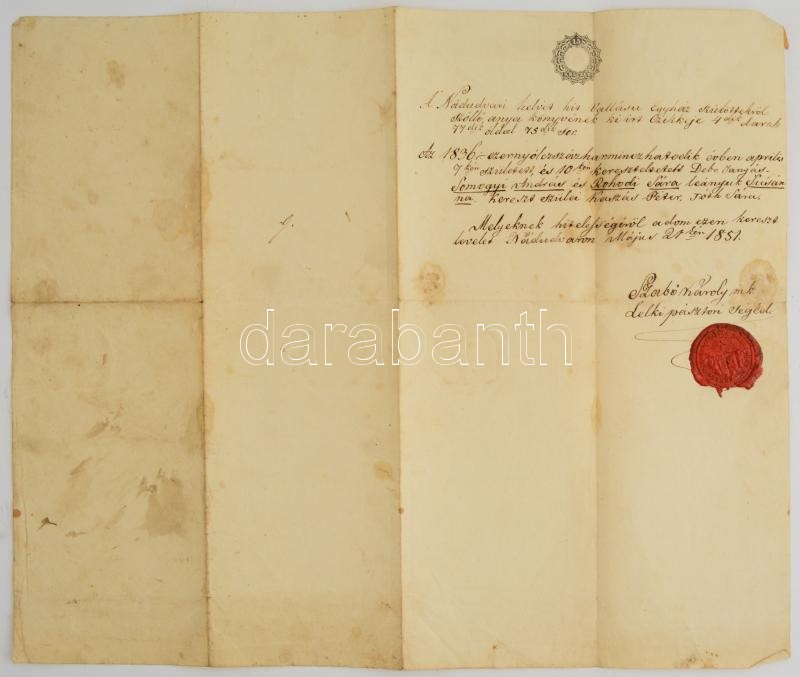 A Nádudvari helvét hit Vallásu egyház szülöttekről
szólló, anya könyvének ki irt Czikkéje 4 dik darab
77 dik óldal 75 dik sor.
Az 1836,- ezernyólczszázharminczhatodik évben április
7 kén született, és 10 kén kereszteltetett Debr Janjás.
Somogyi András és Rohodi Sára leányuk Susán
na. Kereszt szülei Kaszás Péter, Tóth Sára.
Melyeknek hitelességéről adom ezen kereszt
levelet Nádudvaron Május 21 kén 1851.
Szabó Károly mk
Lelki pásztori Segéd.
darabanth